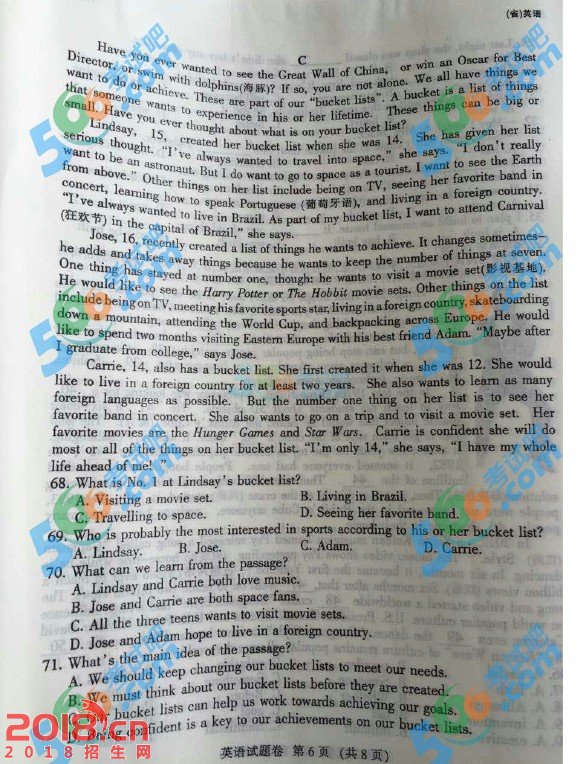 (省)英语
C
Have you ever wanted to see the Great Wall of China, or win an Oscar for Best
Director, or swim with dolphins(海豚)? If so, you are not alone. We all have things we
want to do or achieve. These are part of our “bucket lists”. A bucket is a list of things
that someone wants to experience in his or her lifetime. These things can be big or
small. Have you ever thought about what is on your bucket list?
Lindsay, 15, created her bucket list when she was 14. She has given her list
serious thought. “I've always wanted to travel into space,” she says. “I don't really
want to be an astronaut. But I do want to go to space as a tourist. I want to see the Earth
from above.” Other things on her list include being on TV, seeing her favorite band in
concert, learning how to speak Portuguese (葡萄牙语), and living in a foreign country.
“I've always wanted to live in Brazil. As part of my bucket list, I want to attend Carnival
(狂欢节) in the capital of Brazil,” she says.
Jose, 16, recently created a list of things he wants to achieve. It changes sometimes—
he adds and takes away things because he wants to keep the number of things at seven.
One thing has stayed at number one, though: he wants to visit a movie set(影视基地).
He would like to see the Harry Potter or The Hobbit movie sets. Other things on the list
include being on TV, meeting his favorite sports star, living in a foreign country, skateboarding
down a mountain, attending the World Cup, and backpacking across Europe. He would
like to spend two months visiting Eastern Europe with his best friend Adam. “Maybe after
I graduate from college,” says Jose.
Carrie, 14, also has a bucket list. She first created it when she was 12. She would
like to live in a foreign country for at least two years. She also wants to learn as many
foreign languages as possible. But the number one thing on her list is to see her
favorite band in concert. She also wants to go on a trip and to visit a movie set. Her
favorite movies are the Hunger Games and Star Wars. Carrie is confident she will do
most or all of the things on her bucket list. “I'm only 14,” she says, “I have my whole
life ahead of me!”
68. What is No. 1 at Lindsay's bucket list?
A. Visiting a movie set. B. Living in Brazil.
C. Travelling to space. D. Seeing her favorite band.
69. Who is probably the most interested in sports according to his or her bucket list?
A. Lindsay. B. Jose. C. Adam. D. Carrie.
70. What can we learn from the passage?
A. Lindsay and Carrie both love music.
B. Jose and Carrie are both space fans.
C. All the three teens wants to visit movie sets.
D. Jose and Adam hope to live in a foreign country.
71. What's the main idea of the passage?
A. We should keep changing our bucket lists to meet our needs.
B. We must think about our bucket lists before they are created.
bucket lists can help us work towards achieving our goals.
D. Being confident is a key to our achievements on our bucket lists.
英语试题卷 第6页 (共8页)
2018.cn
2018招生网